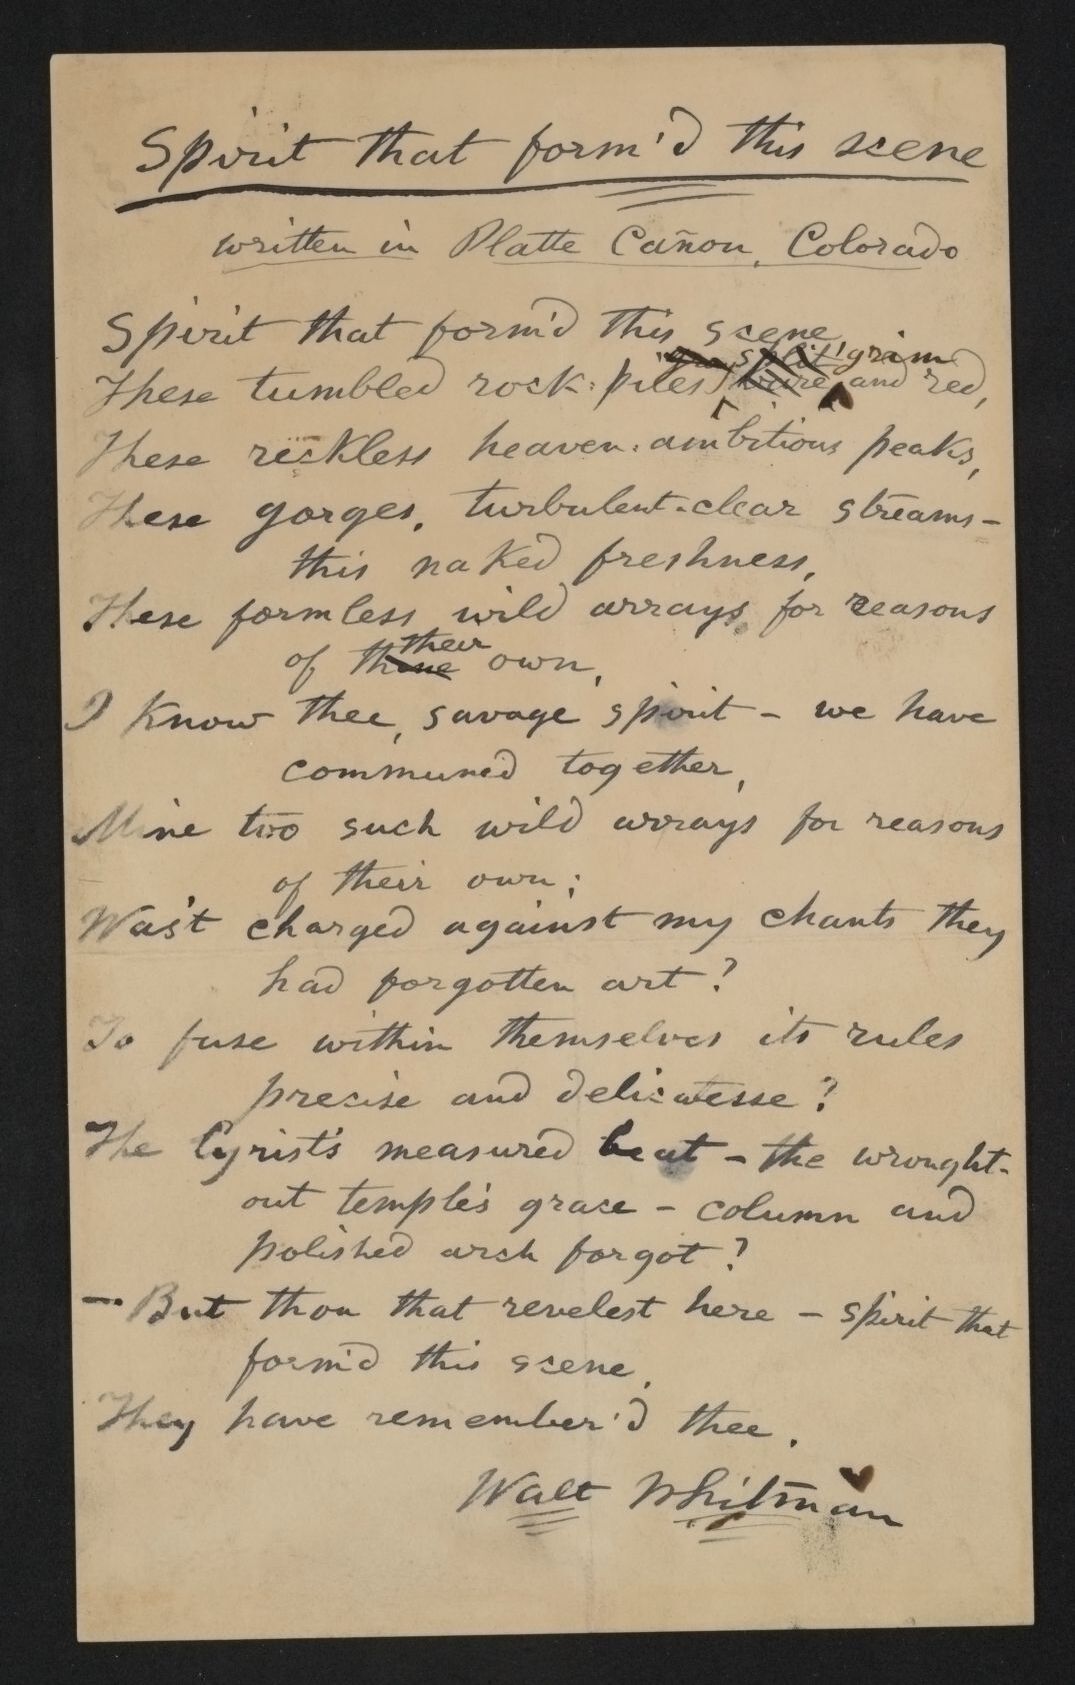 Spirit that form'd this scene
written in Platte Cañon, Colorado
Spirit that form'd this scene
split grim
These tumbled rock-piles bare and red,
These reckless heaven-ambitious peaks,
These gorges, turbulent-clear streams —
this naked freshness,
These formless wild arrays, for reasons
their
of thine own,
I know thee, savage spirit — we have
communed together,
Mine too such wild arrays for reasons
of their own;
Was't charged against my chants they
had forgotten art?
To fuse within themselves its rules
precise and delicatesse?
The lyrist's measured beat — the wrought-
out temple's grace — column and
polished arch forgot?
— But thou that revelest here — spirit that
form'd this scene,
They have remember'd thee.
Walt Whitman